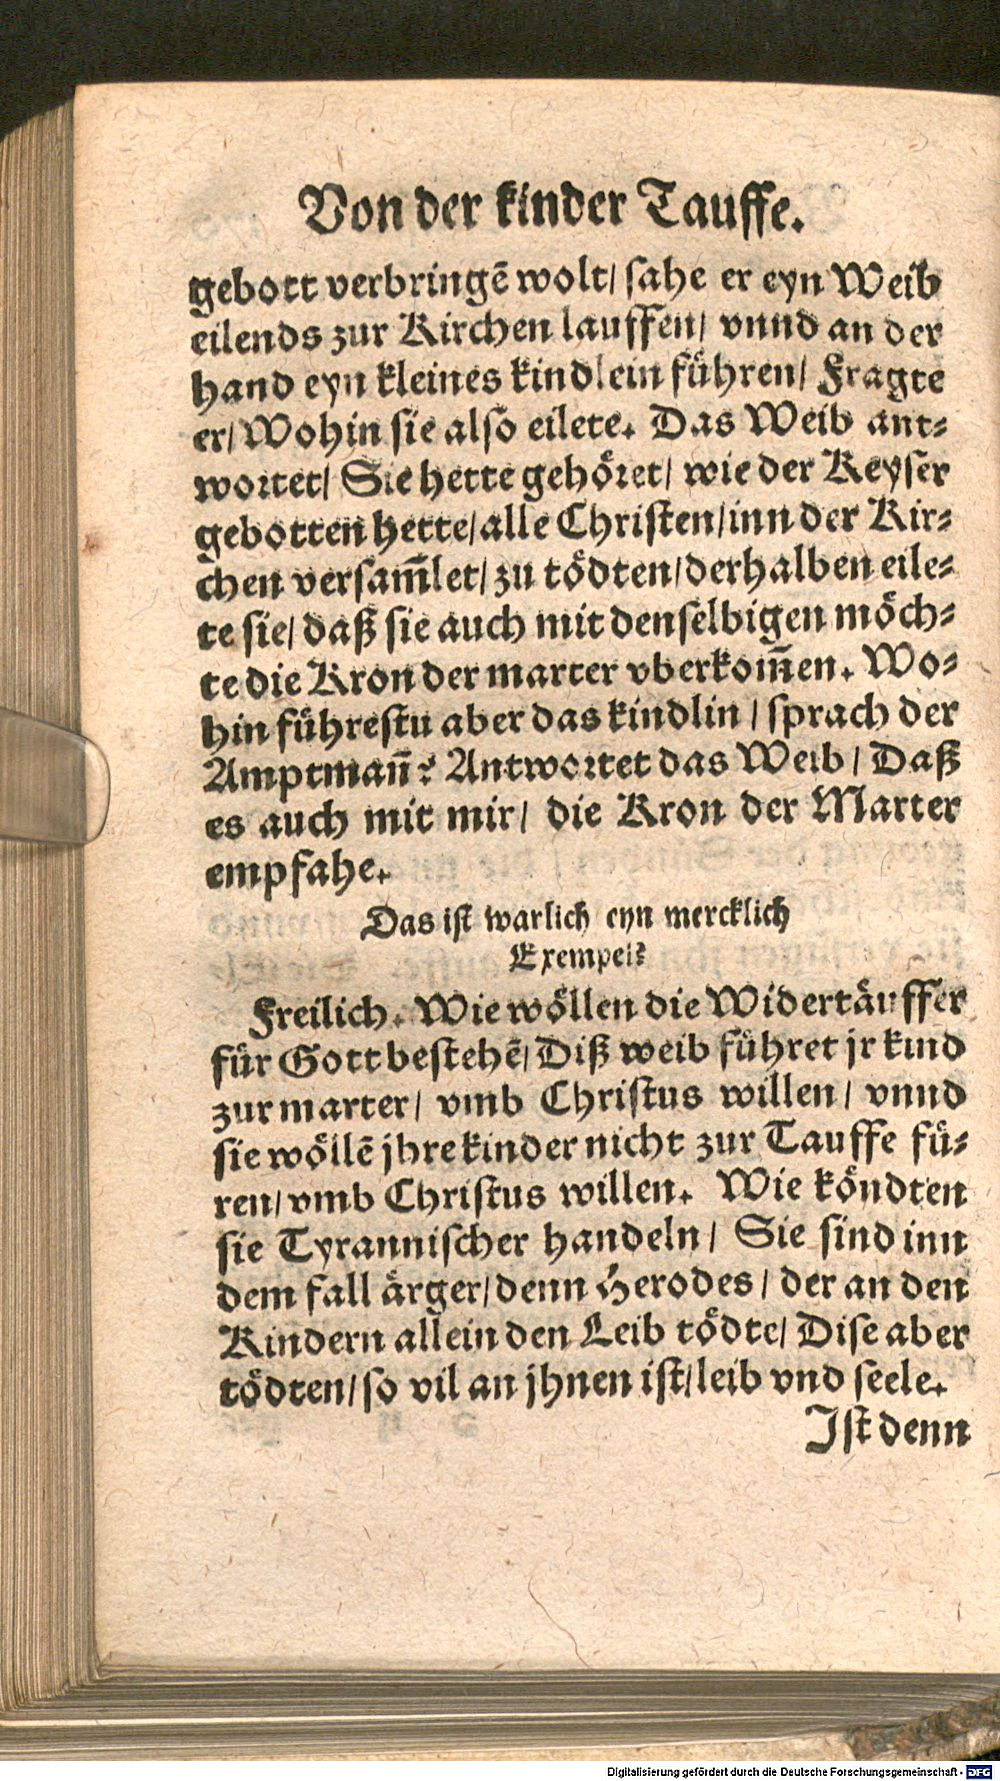 Von der kinder Tauffe.
gebott verbringē wolt/ sahe er eyn Weib
eilends zur Kirchen lauffen/ vnnd an der
hand eyn kleines kindlein führen/ Fragte
er/ Wohin sie also eilete. Das Weib ant⸗
wortet/ Sie hette gehöret/ wie der Keyser
gebotten hette/ alle Christen/ inn der Kir⸗
chen versam̄let/ zu tödten/ derhalben eile⸗
te sie/ daß sie auch mit denselbigen möch⸗
te die Kron der marter vberkom̄en. Wo⸗
hin führestu aber das kindlin/ sprach der
Amptman̄? Antwortet das Weib/ Daß
es auch mit mir/ die Kron der Marter
empfahe.
Das ist warlich eyn mercklich
Exempel?
Freilich. Wie wöllen die Widertäuffer
für Gott bestehē/ Diß weib führet jr kind
zur marter/ vmb Christus willen/ vnnd
sie wöllē jhre kinder nicht zur Tauffe fü⸗
ren/ vmb Christus willen. Wie köndten
sie Tyrannischer handeln/ Sie sind inn
dem fall ärger/ denn Herodes/ der an den
Kindern allein den Leib tödte/ Dise aber
tödten/ so vil an jhnen ist/ leib vnd seele.
Ist denn
Digitalisierung gefördert durch die Deutsche Forschungsgemeinschaft - DFG